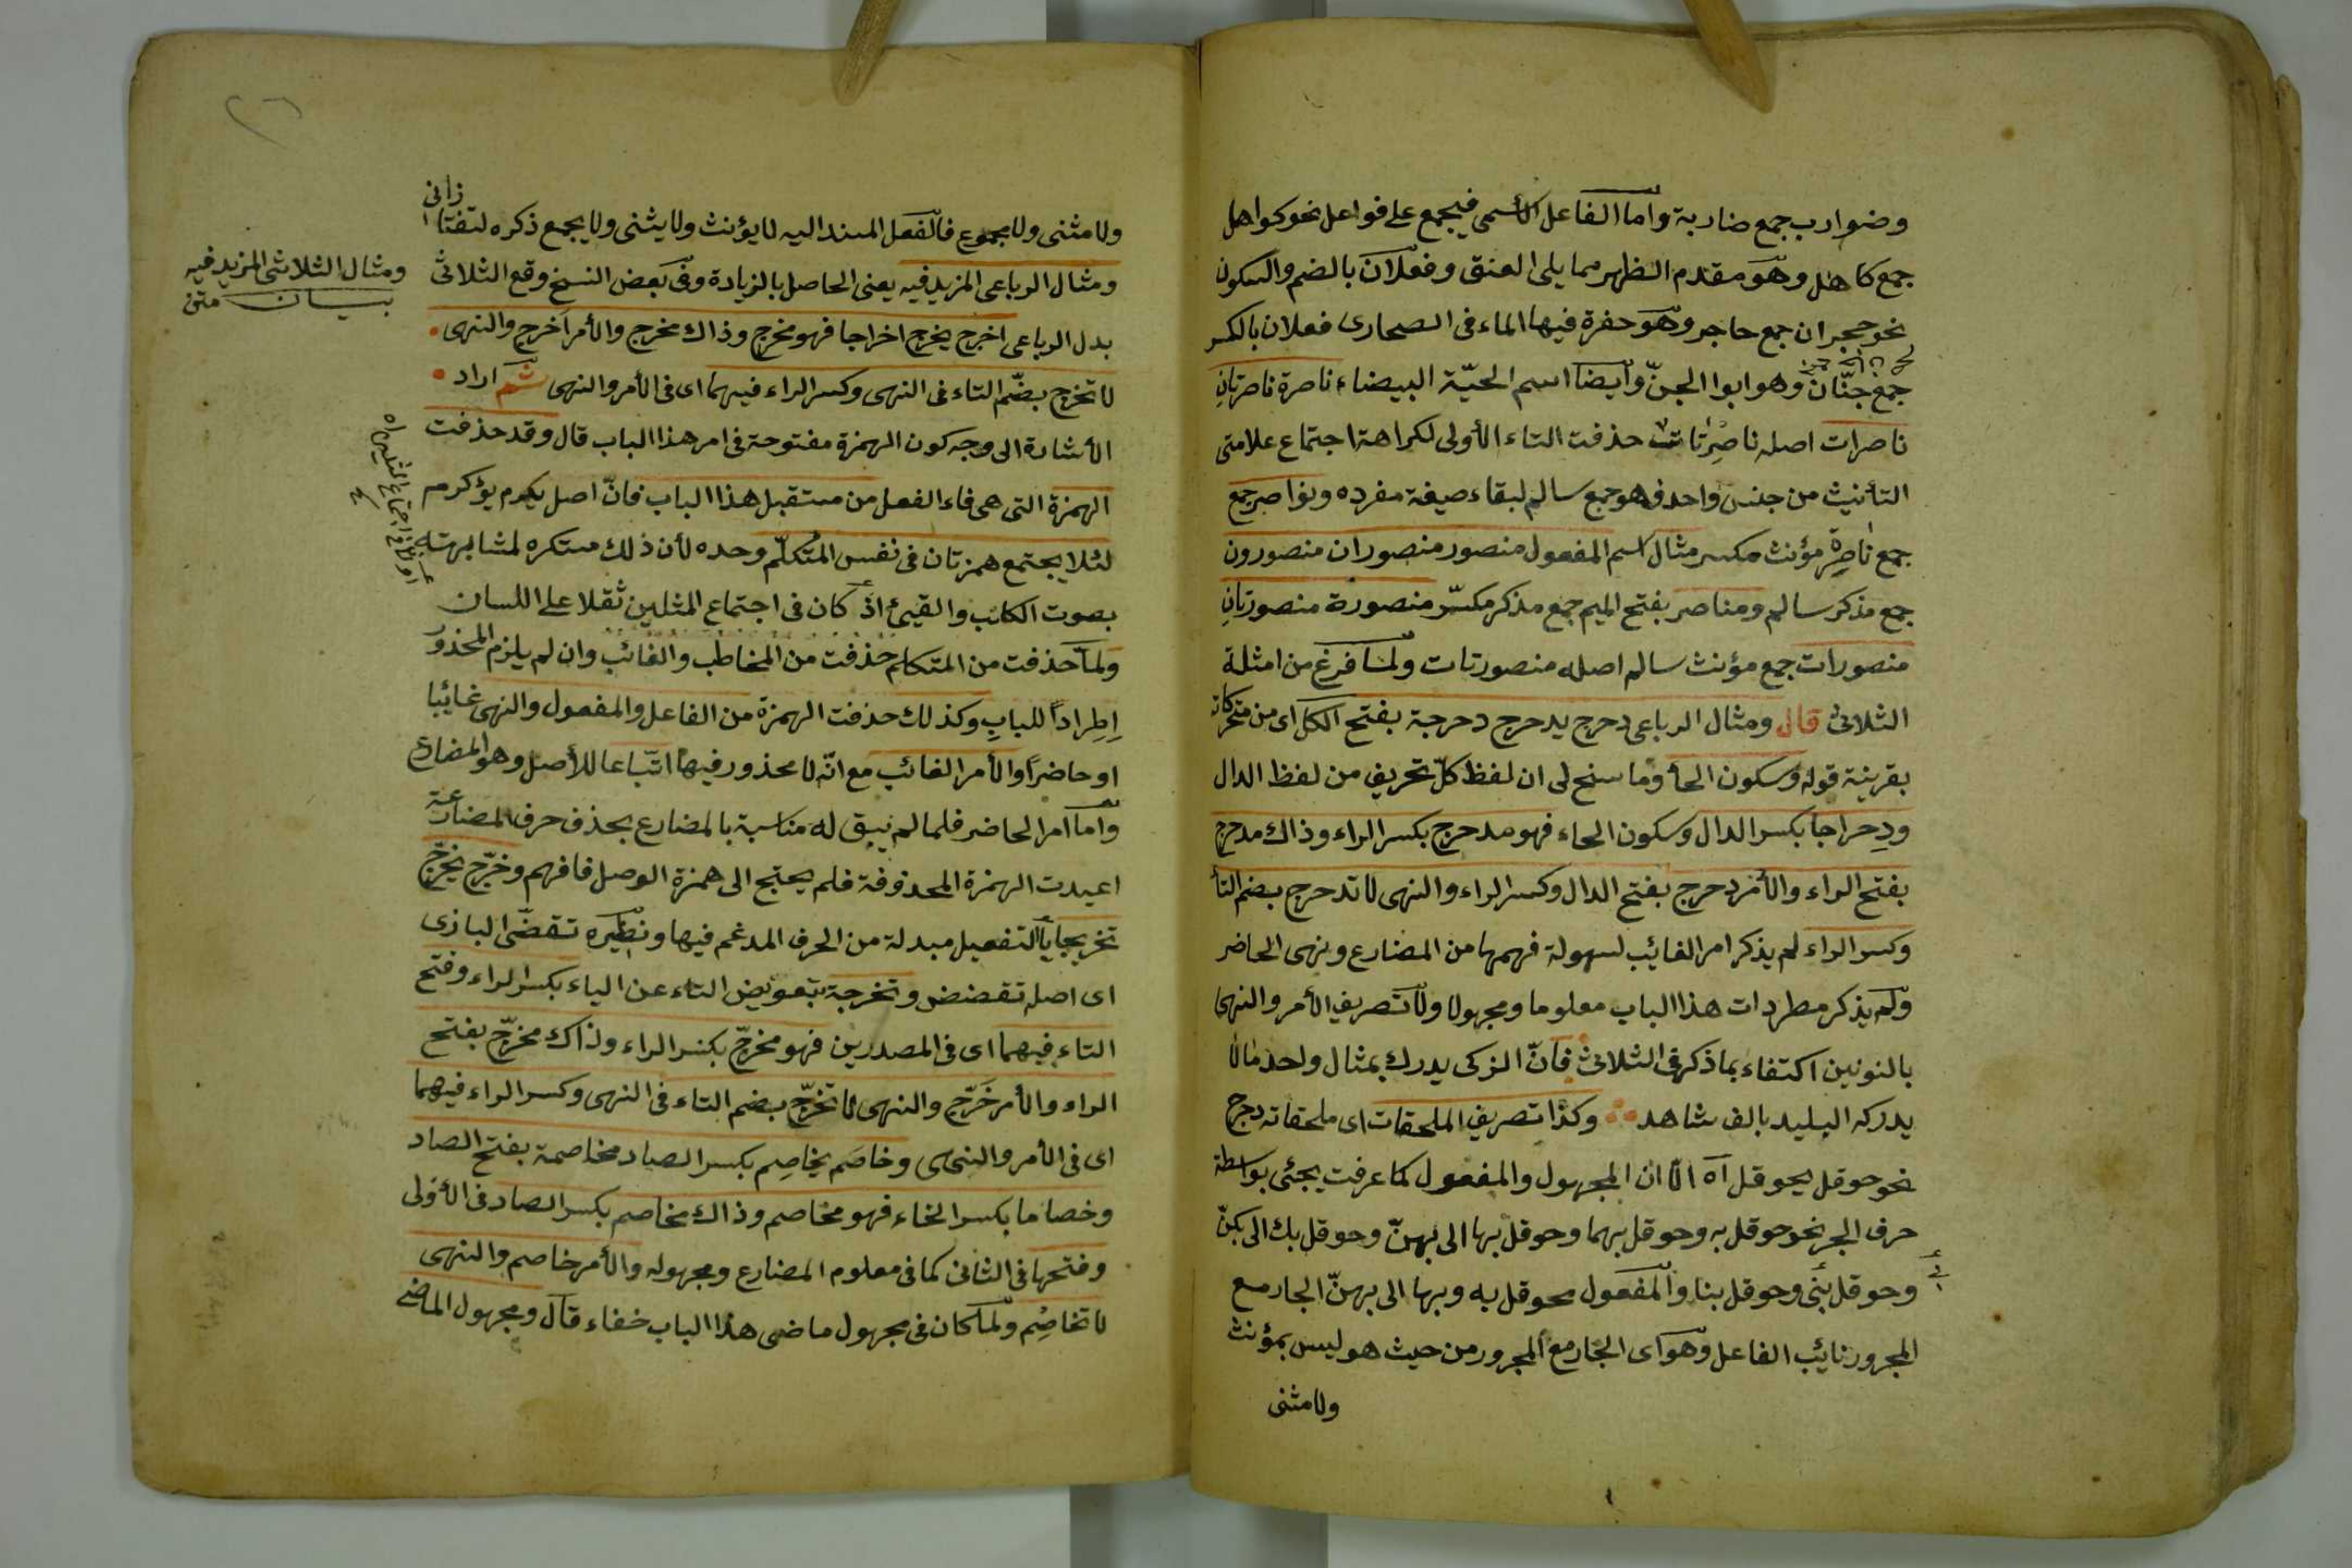 وضوارب جمع ضاربة واما الفاعل الأسمى فيجمع على فواعل نحو كواهل
جمع كاهل وهو مقدم الظهر مما يلى العنق وفعلان بالضم والسكون
نحو حجران جمع حاجر وهو حفرة فيها الماء فى الصحارى فعلان بالكسر
جمع جنّان وهو ابوا الجنّ وأيضا اسم الحيّة البيضاء ناصرة ناصرتانِ
ناصرات اصله ناصِرَتات حذفت التاء الأولى لكراهة اجتماع علامتى
التأنيث من جنس واحد فهو جمع سالم لبقاء صيغة مفرده ونواصر جمع
جمع ناصِرة مؤنث مكسر مثال اسم المفعول منصور منصوران منصورون
جمع مذكر سالم ومناصر بفتح الميم جمع مذكر مكسّر منصورة منصورتانِ
منصورات جمع مؤنث سالم اصله منصورتات ولما فرغ من امثلة
الثلاثى قال ومثال الرباعى دحرج يدحرج دحرجة بفتح الكل اى من متحركاته
بقرينة قوله وسكون الحأ وما سنح لى ان لفظ كلّ تحريف من لفظ الدال
ودِحراجا بكسر الدال وسكون الحاء فهو مدحرج بكسر الراء وذاك مدحرج
بفتح الراء والأمر دحرج بفتح الدال وكسر الراء والنهى لا تدحرج بضم التأ
وكسر الراء لم يذكر امر الغائب لسهولة فهمها من المضارع ونهى الحاضر
ولم يذكر مطردات هذا الباب معلوما ومجهولا ولا تصريف الأمر والنهى
بالنونين اكتفاء بما ذكر فى الثلاثى فانّ الزكى يدرك بمثال واحد مالا
يدركه البليد بالف شاهد وكذا تصريف الملحقات اى ملحقاته دحرج
نحو حوقل يحوقل آه الّا ان المجهول والمفعول كما عرفت يجئى بواسطة
حرف الجر نحو حوقل به وحوقل بهما وحوقل بها الى بهنّ وحوقل بك الى بكنّ
وحوقل بنى وحوقل بنا والمفعول محوقل به وبها الى بهنّ الجار مع
المجرور نايب الفاعل وهو اى الجار مع المجرور من حيث هو ليس بمؤنث
ولا مثنى
ولا مثنى ولا مجموع فالفعل المسند اليه لا يؤنث ولا يثنى ولا يجمع ذكره لتفتازانى
ومثال الرباعى المزيد فيه يعنى الحاصل بالزيادة وفى بعض النسخ وقع الثلاثى
ومثال الثلاثى المزيد فيه
بيان متن
بدل الرباعى اخرج يخرج اخراجا فهو مخرج وذاك مخرج والأمر اَخرج والنهى
لا تخرج بضّم التاء فى النهى وكسر الراء فيهما اى فى الأمر والنهى ثم اراد
الأشارة الى وجه كون الهمزة مفتوحة فى امر هذا الباب قال وقد حذفت
الهمزة التى هى فاء الفعل من مستقبل هذا الباب فانّ اصل يكرم يؤكرم
لئلا يجتمع همزتان فى نفس المُتكلّم وحده لأن ذلك مستكره لمشابهته
بصوت الكلاب والقيئ اذ كان فى اجتماع المثلين ثقلا على اللسان
ولما حذفت من المتكلم حذفت من المخاطب والغائب وان لم يلزم المحذور
اِطِراداً للبابِ وكذلك حذفت الهمزة من الفاعل والمفعول والنهى غائبا
او حاضراً والأمر الغائب مع انّه لا محذور فيها اتّباعا للأصل وهو المضارع
واما امر الحاضر فلما لم يبق له مناسبة بالمضارع بحذف حرف المضارعة
اعيدت الهمزة المحذوفة فلم يحتج الى همزة الوصل فافهم وخرّج يخرّج
تخريجا ياْ التفعيل مبدلة من الحرف المدغم فيها ونظيره تقضّى البازى
اى اصله تقضض وتخرجة بتعويض التاء عن الياء بكسر الراء وفتح
التاء فيهما اى فى المصدرين فهو مخرّج بكسر الراء وذاك مخرّج بفتح
الراء والأمر خَرّج والنهى لا تخرّج بضم التاء فى النهى وكسر الراء فيهما
اى فى الأمر والنهى وخاصَم يخاصِم بكسر الصاد مخاصمة بفتح الصاد
وخصاما بكسر الخاء فهو مخاصم وذاك مخاصم بكسر الصاد فى الأولى
وفتحها فى الثانى كما فى معلوم المضارع ومجهوله والأمر خاصم والنهى
لا تخاصِم ولما كان فى مجهول ماضى هذا الباب خفاء قال ومجهول الماضى